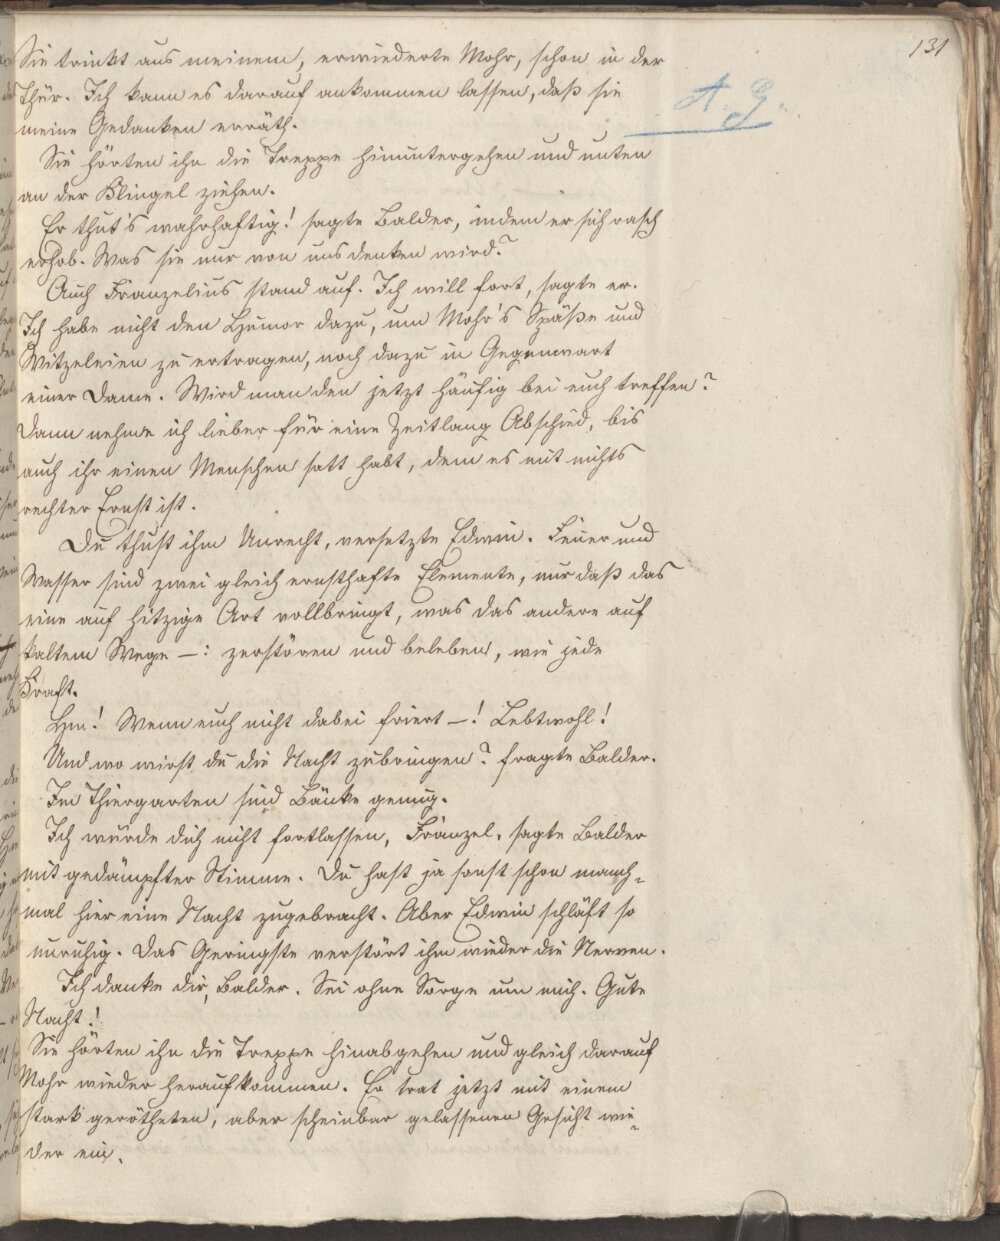 131
Sie trinkt aus meinem, erwiederte Mohr, schon in der
A. G.
Thür. Ich kann es darauf ankommen lassen, daß sie
meine Gedanken erräth.
Sie hörten ihn die Treppe hinuntergehen und unten
an der Klingel ziehen.
Er thut's wahrhaftig! sagte Balder, indem er sich rasch
erhob. Was sie nur von uns denken wird?
Auch Franzelius stand auf. Ich will fort, sagte er.
Ich habe nicht den Humor dazu, um Mohr's Späße und
Witzeleien zu ertragen, noch dazu in Gegenwart
einer Dame. Wird man den jetzt häufig bei euch treffen?
Dann nehme ich lieber für eine Zeitlang Abschied, bis
auch ihr einen Menschen satt habt, dem es mit nichts
rechter Ernst ist.
Du thust ihm Unrecht, versetzte Edwin. Feuer und
Wasser sind zwei gleich ernsthafte Elemente, nur daß das
eine auf hitzige Art vollbringt, was das andere auf
kaltem Wege —: zerstören und beleben, wie jede
Kraft.
Hm! Wenn euch nicht dabei friert —! Lebtwohl!
Und wo wirst du die Nacht zubringen? fragte Balder.
Im Thiergarten sind Bänke genug.
Ich würde dich nicht fortlassen, Franzel, sagte Balder
mit gedämpfter Stimme. Du hast ja sonst schon manch-
mal hier eine Nacht zugebracht. Aber Edwin schläft so
unruhig. Das Geringste verstört ihm wieder die Nerven.
Ich danke dir, Balder. Sei ohne Sorge um mich. Gute
Nacht!
Sie hörten ihn die Treppe hinabgehen und gleich darauf
Mohr wieder heraufkommen. Er trat jetzt mit einem
stark gerötheten, aber scheinbar gelassenen Gesicht wie-
der ein.